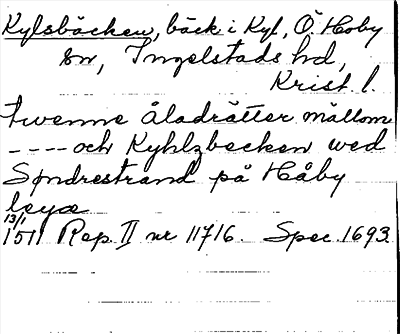 Kylsbäcken, bäck i Kyl, Ö. Hoby
sn, Ingelstads hd,
Krist. l.
twenne åladrätter mällom
---- och Kyhlzbecken wed
Søndrestrand på Håby
leyæ
13/1 1511 Rep. II nr 11716. Spec. 1693.